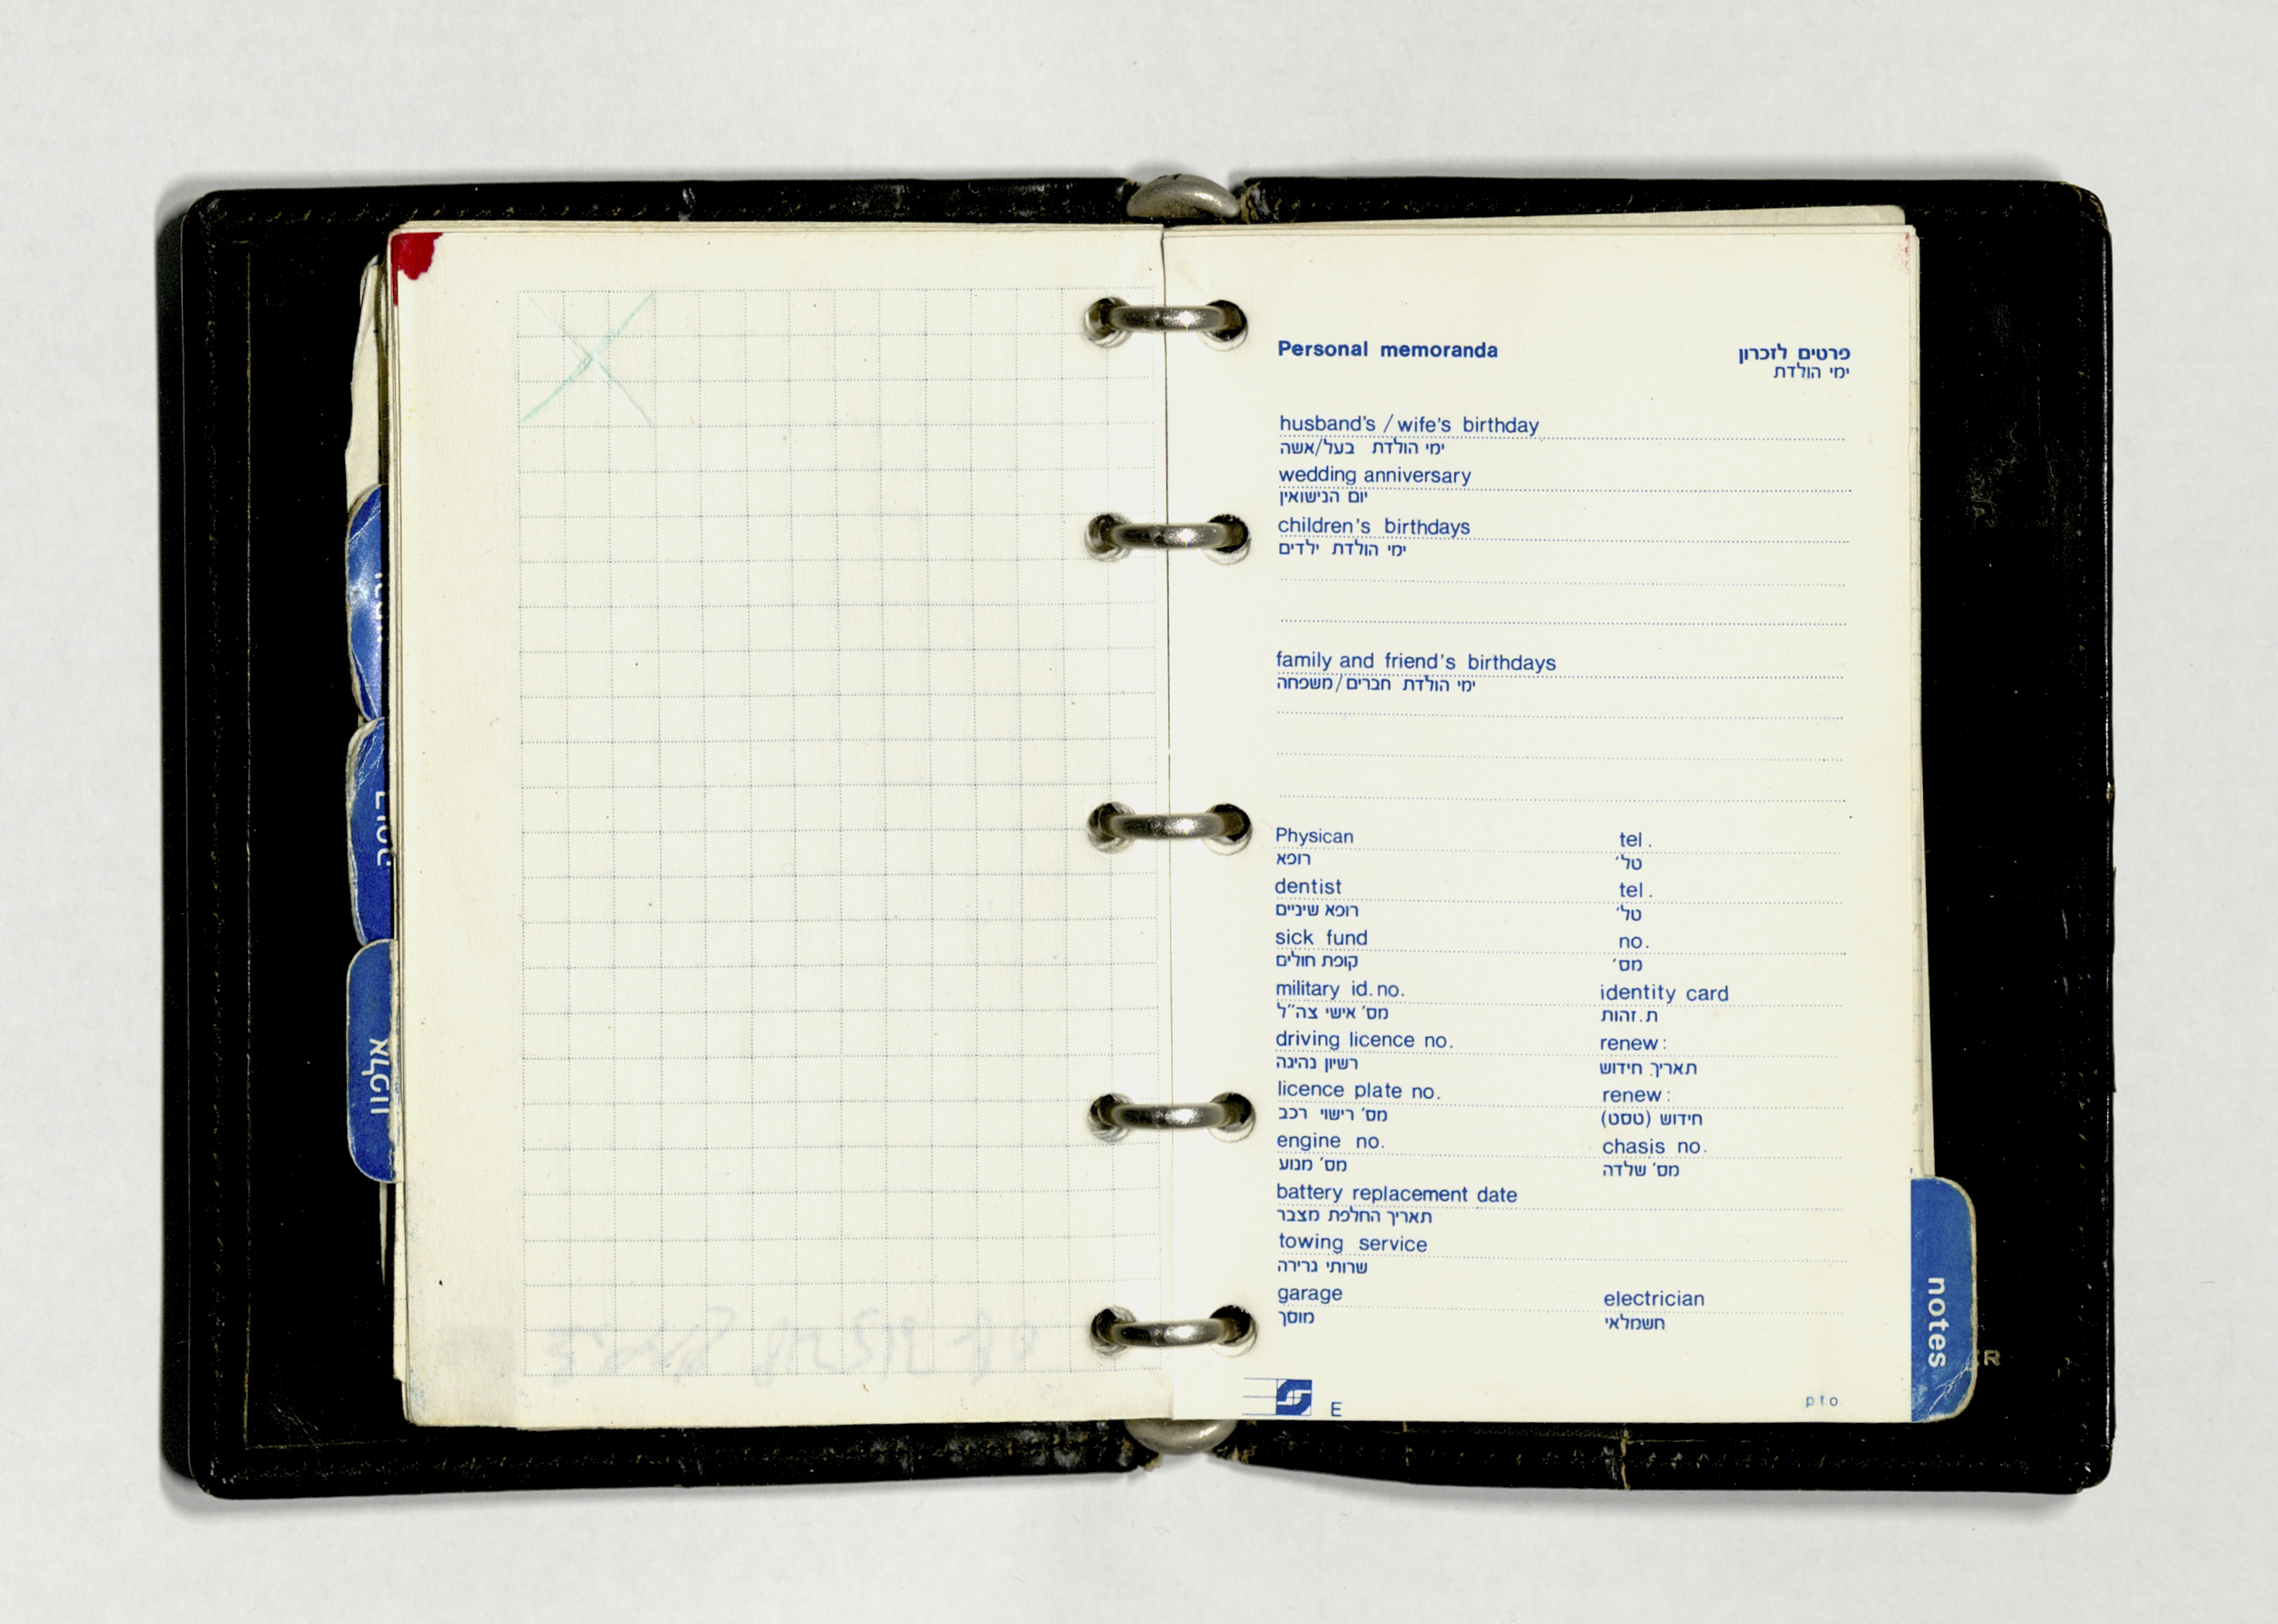 Personal memoranda פרטים לזכרון
ימי הולדת
husband's / wife's birthday
ימי הולדת בעל/אשה
wedding anniversary
יום הנישואין
children's birthdays
ימי הולדת ילדים
family and friend's birthdays
ימי הולדת חברים/משפחה
Physican tel.
רופא טל׳
dentist tel.
רופא שיניים טל׳
sick fund no.
קופת חולים מס׳
military id. no. identity card
מס׳ אישי צה״ל ת. זהות
driving licence no. renew:
רשיון נהיגה תאריך חידוש
licence plate no. renew:
מס׳ רישוי רכב חידוש (טסט)
engine no. chasis no.
מס׳ מנוע מס׳ שלדה
battery replacement date
תאריך החלפת מצבר
towing service
שרותי גרירה
garage electrician
מוסך חשמלאי
E p.t.o
notes
אלפון